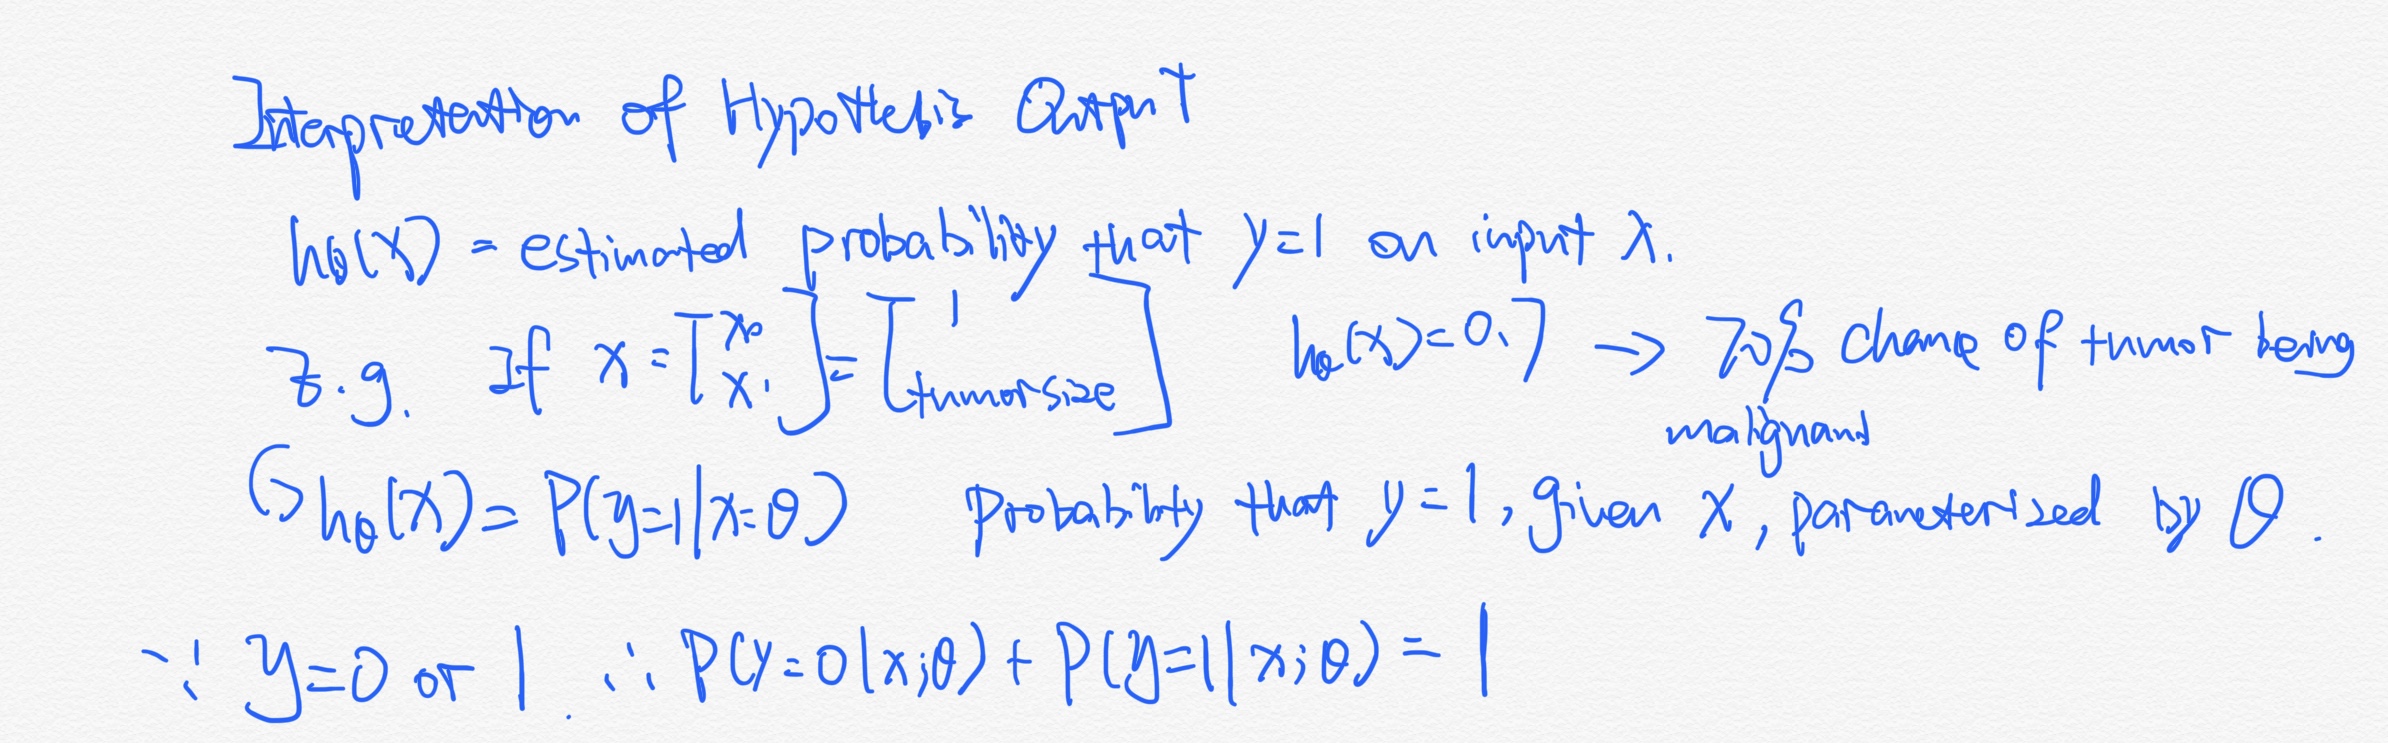 Interpretation of Hypothesis Output
hθ(x) = estimated probability that y=1 on input x.
E.g. If x = [x₀ x₁] = [1 tumorsize] hθ(x)=0.7 → 70% chance of tumor being
malignant
↳ hθ(x) = P(y=1|x=θ) Probability that y=1, given x, parameterized by θ.
∵ y=0 or 1. ∴ P(y=0|x;θ) + P(y=1|x;θ) = 1